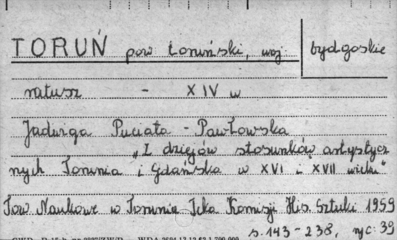 TORUŃ pow toruński, woj. bydgoskie
ratusz - XIV w
Jadwiga Puciata - Pawłowska
"Z dziejów stosunków artystycz
nych Torunia i Gdańska w XVI i XVII wieku"
Tow. Naukowe w Toruniu Teka Komisji His. Sztuki 1959
s. 143 - 238, ryc. 39